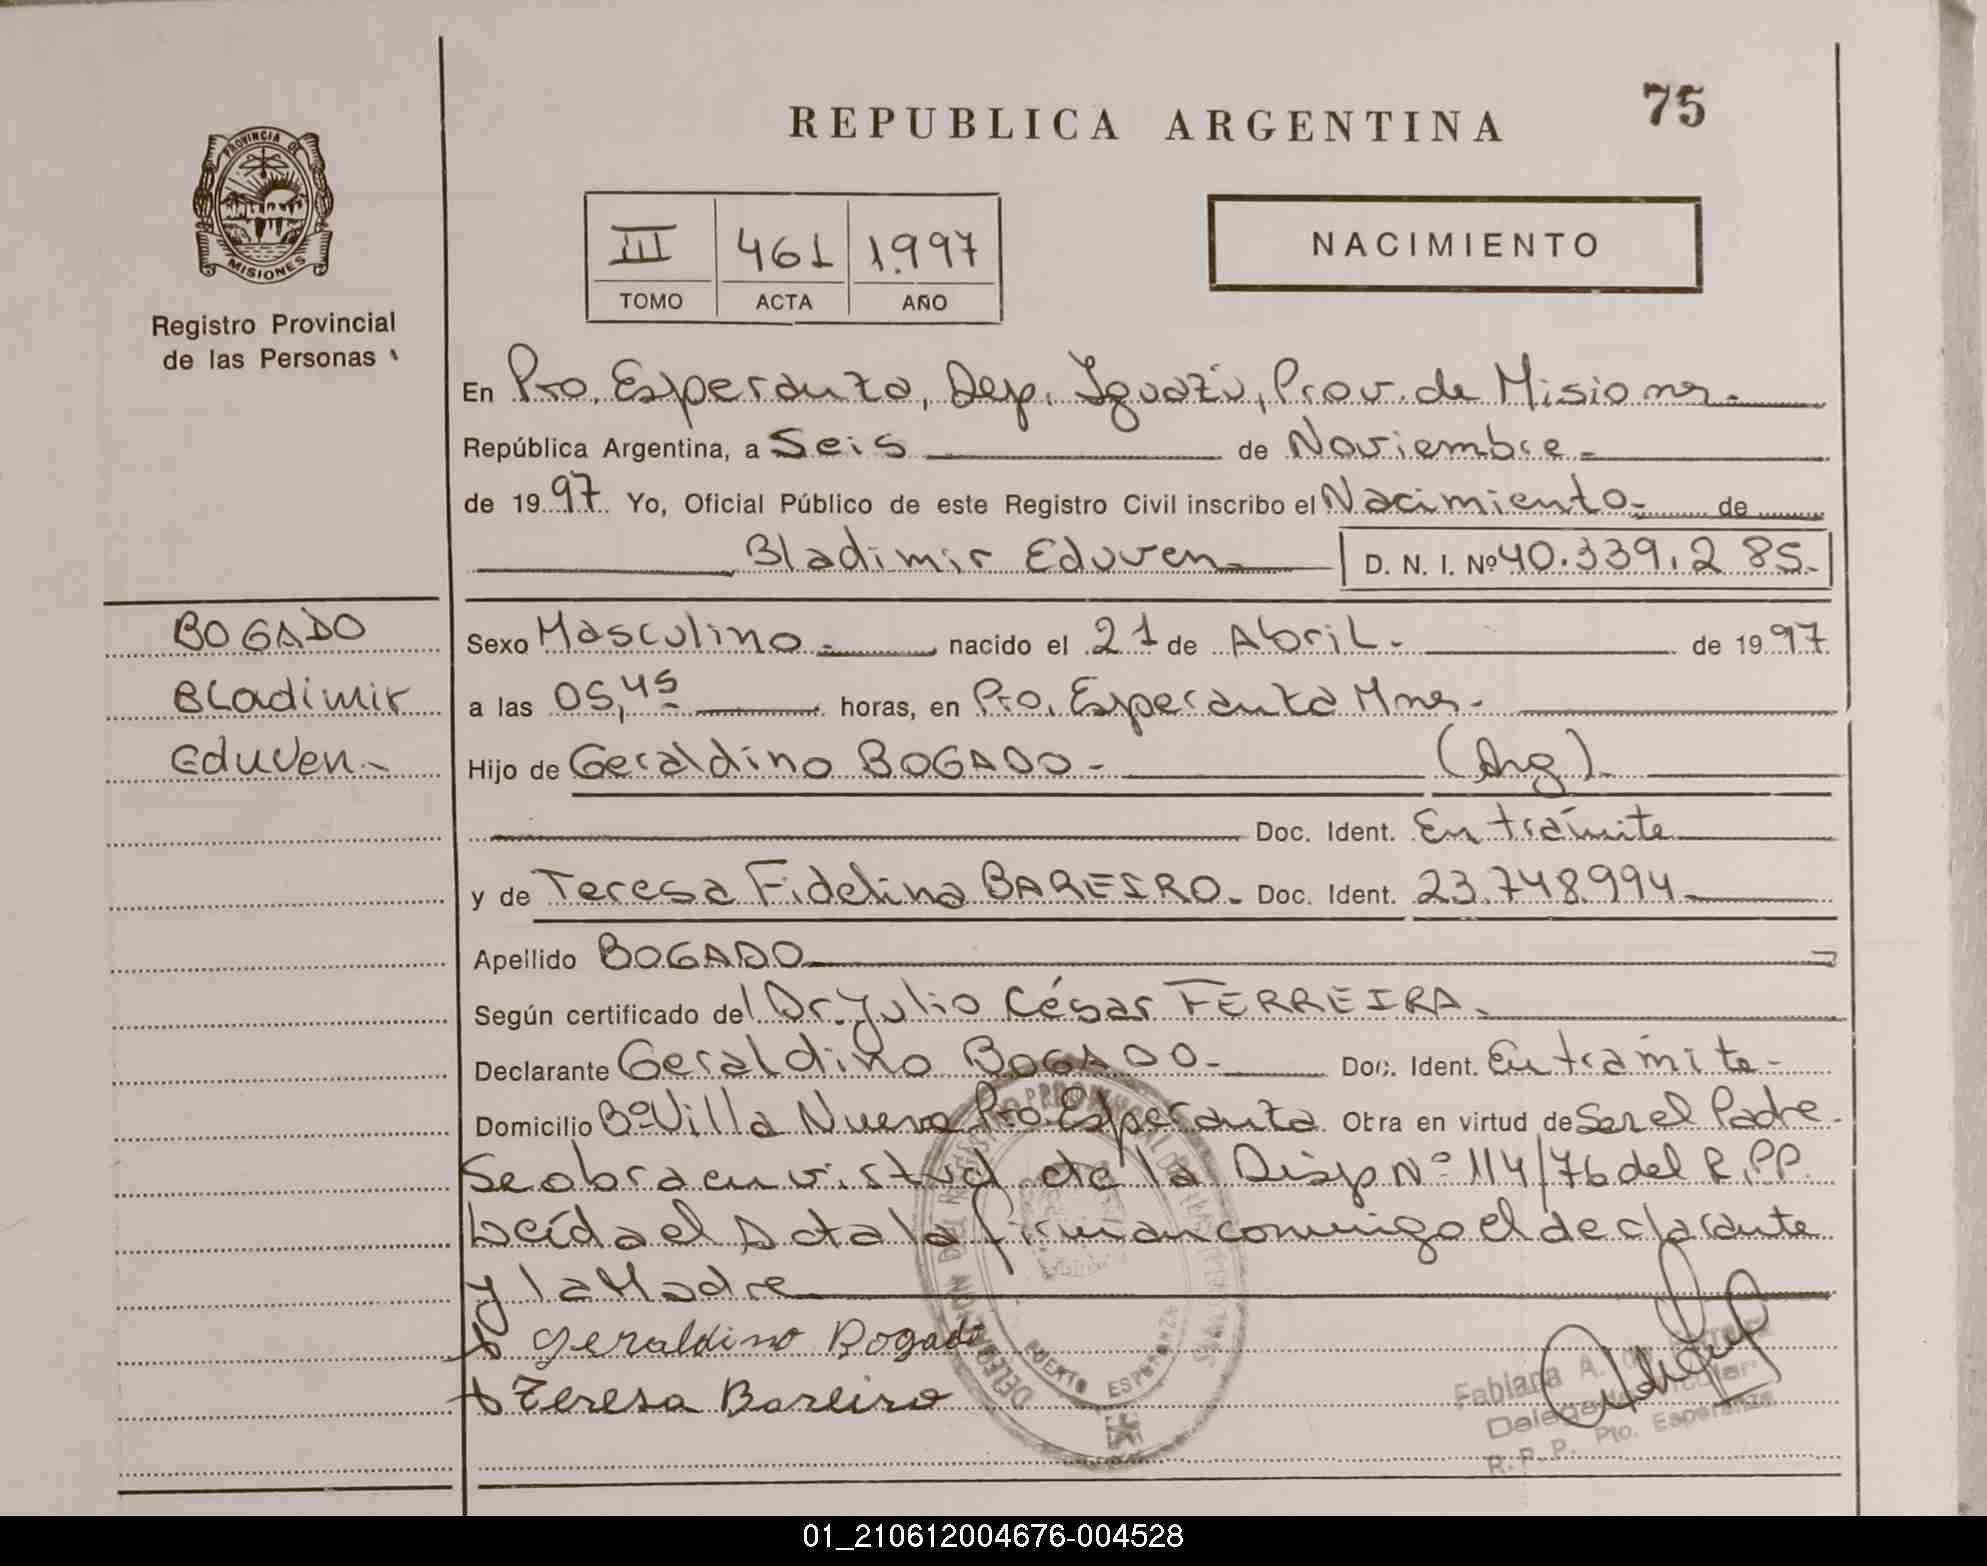 75
REPUBLICA ARGENTINA
PROVINCIA DE
MISIONES
Registro Provincial
de las Personas
III 461 1.997
TOMO ACTA AÑO
NACIMIENTO
En Pto. Esperanza, Dep. Iguazú, Prov. de Misiones.
República Argentina, a Seis de Noviembre.
de 1997 Yo, Oficial Público de este Registro Civil inscribo el Nacimiento. de
Bladimir Eduven D. N. I. Nº 40.339.285.
BOGADO
Bladimir
Eduven.
Sexo Masculino. nacido el 21 de Abril. de 1997.
a las 05,45 horas, en Pto. Esperanza Mnes.
Hijo de Geraldino BOGADO. (Arg).
Doc. Ident. En trámite
y de Teresa Fidelina BAREIRO. Doc. Ident. 23.748.994
Apellido BOGADO
Según certificado del Dr. Julio César FERREIRA.
Declarante Geraldino BOGADO. Doc. Ident. En trámite.
Domicilio Bº Villa Nueva Pto. Esperanza. Obra en virtud de Ser el Padre.
Se obra en virtud de la Disp Nº 114/76 del R.P.P.
Leída el Acta la firman conmigo el declarante
y la Madre
Geraldino Bogado
Teresa Bareiro
DELEGACION DEL REGISTRO PROVINCIAL DE LAS PERSONAS
PUERTO ESPERANZA
Fabiana A. de
R.P.P. Pto. Esperanza
01_210612004676-004528